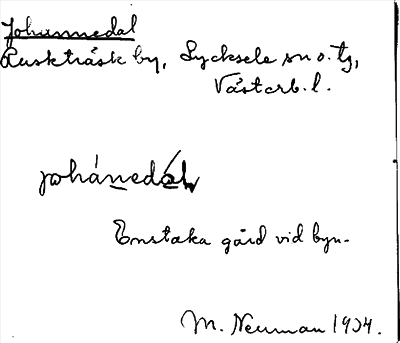 Johannedal
Ruskträsk by, Lycksele sn o. tg,
Västerb. l.
johánedál
Enstaka gård vid byn.
M. Neuman 1934.